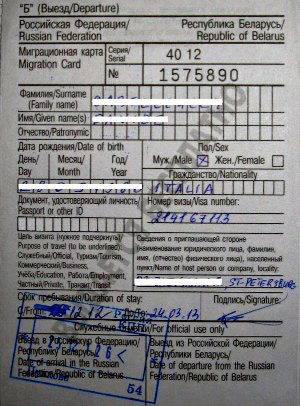 "Б" (Выезд/Departure)
Российская Федерация/ Республика Беларусь/
Russian Federation Republic of Belarus
Миграционная карта Серия/ 40 12
Migration Card Serial
№ 1575890
Фамилия/Surname
(Family name)
Имя/Given name(s)
Отчество/Patronymic
Дата рождения/Date of birth Пол/Sex
День/ Месяц/ Год/ Муж./Male X Жен./Female
Day Month Year Гражданство/Nationality
ITALIA
Документ, удостоверяющий личность/ Номер визы/Visa number:
Passport or other ID 214167113
Цель визита (нужное подчеркнуть)/ Сведения о приглашающей стороне
Purpose of travel (to be underlined): (наименование юридического лица, фамилия,
Служебный/Official, Туризм/Tourism, имя, (отчество) физического лица), населенный
Коммерческий/Business, пункт/Name of host person or company, locality:
Учёба/Education, Работа/Employment,
Частный/Private, Транзит/Transit ST-PETERSBURG
Срок пребывания/Duration of stay: Подпись/Signature:
С/From 12.12 До/To: 24.03.13
Служебные /For official use only
Въезд в Российскую Федерацию/ Выезд из Российской Федерации/
Республику Беларусь/ Республики Беларусь/
Date of arrival in the Russian Date of departure from the Russian
Federation/Republic of Belarus Federation/Republic of Belarus
54